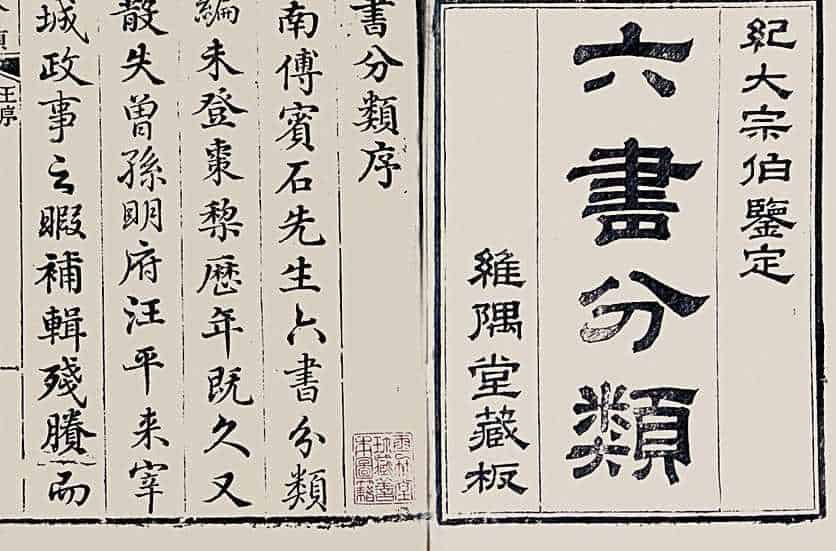 紀大宗伯鑒定
六書分類
維隅堂藏板
書分類序
南傅賓石先生六書分類
編未登棗黎歷年既久又
散失曾孫明府汪平来宰
城政事之暇補輯殘賸而
類
王序